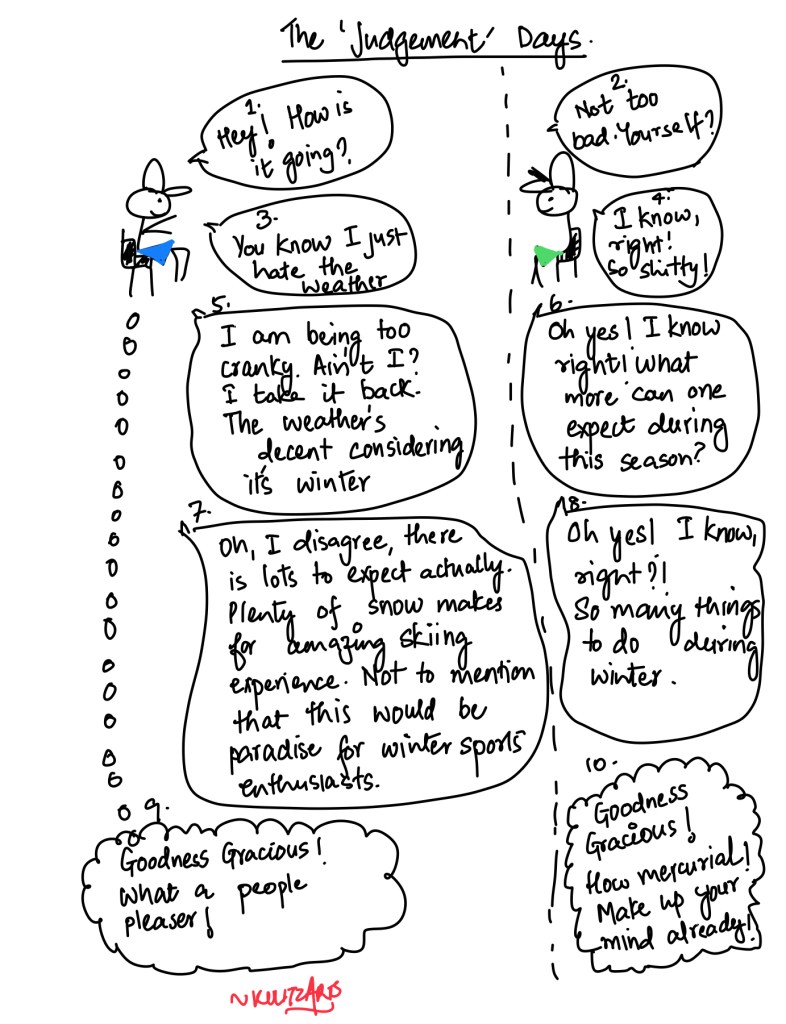 The 'Judgement' Days.
1.
Hey! How is
it going?
2.
Not too
bad. Yourself?
3.
You know I just
hate the
weather
4.
I know,
right!
So shitty!
5.
I am being too
cranky. Ain't I?
I take it back.
The weather's
decent considering
it's winter
6.
Oh yes! I know
right! what
more can one
expect during
this season?
7.
Oh, I disagree, there
is lots to expect actually.
Plenty of snow makes
for amazing skiing
experience. Not to mention
that this would be
paradise for winter sports
enthusiasts.
8.
Oh yes! I know,
right?!
So many things
to do during
winter.
9.
Goodness Gracious!
what a people
pleaser!
10.
Goodness
Gracious!
How mercurial!
Make up your
mind already!